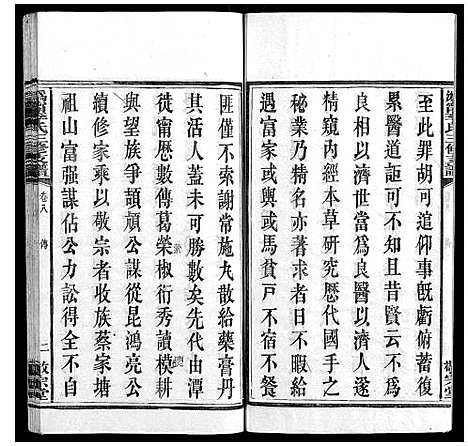 至此罪胡可逭仰事旣虧俯蓄復
累醫道詎可不知前賢有云不為
良相以濟世當爲良醫以濟人遂
精窺內經本草研究歷代國手之
秘業乃精名亦著求者咸與不暇給
遇富家與輿馬貧戸不宿不餐
匪僅不索謝常施丸散給藥膏丹
其活人蓋未可勝數矣先代由潭
徙衡傳數傳葛榮椒衍秀讀樸耕
與望族爭頡頏公謀從昆鴻亮公
續修家乘以敬宗者收族蔡家塘
祖山富强謀佔公力訟得全不自
氏三修支譜
卷八
傳
二
敦宗堂